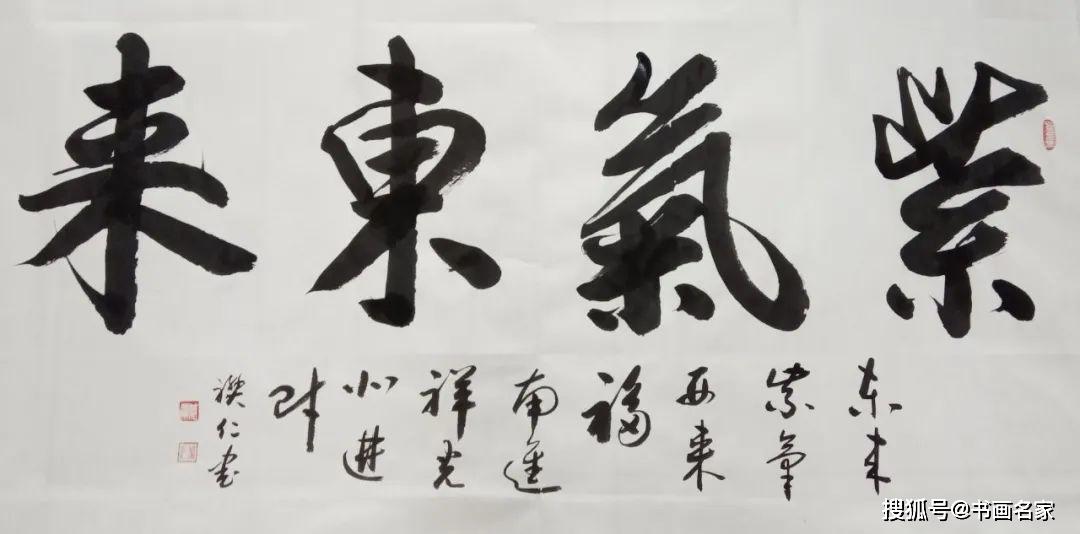 紫氣東来
东来
紫氣
西来
福
南進
祥光
北进
财
仁书
搜狐号@书画名家